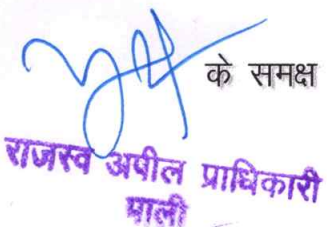 के समक्ष
राजस्व अपील प्राधिकारी
पाली